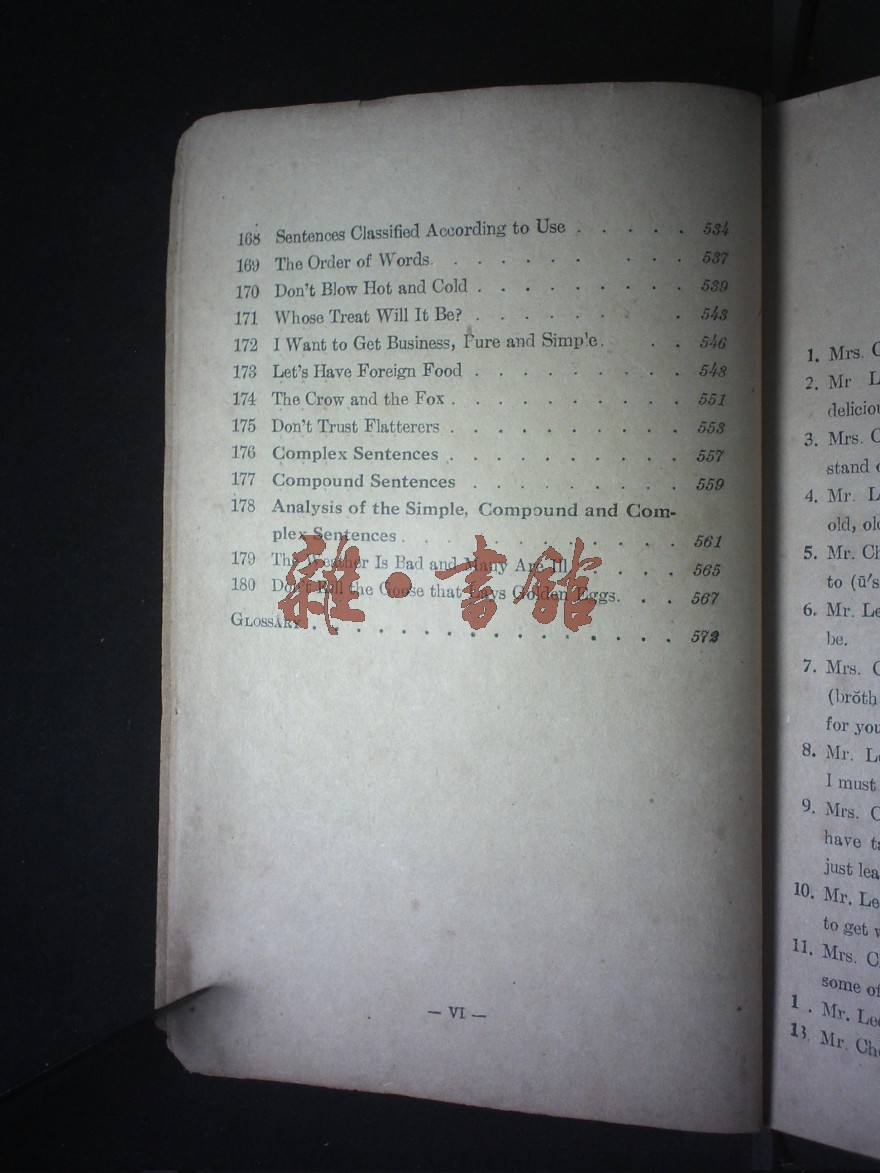 168 Sentences Classified According to Use . . . . . 534
169 The Order of Words. . . . . . . . . . 537
170 Don't Blow Hot and Cold . . . . . . . . . 539
171 Whose Treat Will It Be? . . . . . . . . 543
172 I Want to Get Business, Pure and Simple. . . 546
173 Let's Have Foreign Food . . . . . . . . . 548
174 The Crow and the Fox . . . . . . . . . . 551
175 Don't Trust Flatterers . . . . . . . . . . 553
176 Complex Sentences . . . . . . . . . . 557
177 Compound Sentences . . . . . . . . . 559
178 Analysis of the Simple, Compound and Com-
plex Sentences . . . . . . . . . . . . 561
179 The Weather Is Bad and Many Are Ill. . . . . 565
180 Don't Kill the Goose that Lays Golden Eggs. . . 567
GLOSSARY . . . . . . . . . . . . . . . . . 572
雜·書館
— VI —
1. Mrs.
2. Mr
3. Mrs.
stand
4. Mr.
old,
5. Mr.
to (ū's
6. Mr.
be.
7. Mrs.
(brŏth
for
8. Mr.
I must
9. Mrs.
have
just
10. Mr.
to get
11. Mrs.
some
1 . Mr.
13. Mr.